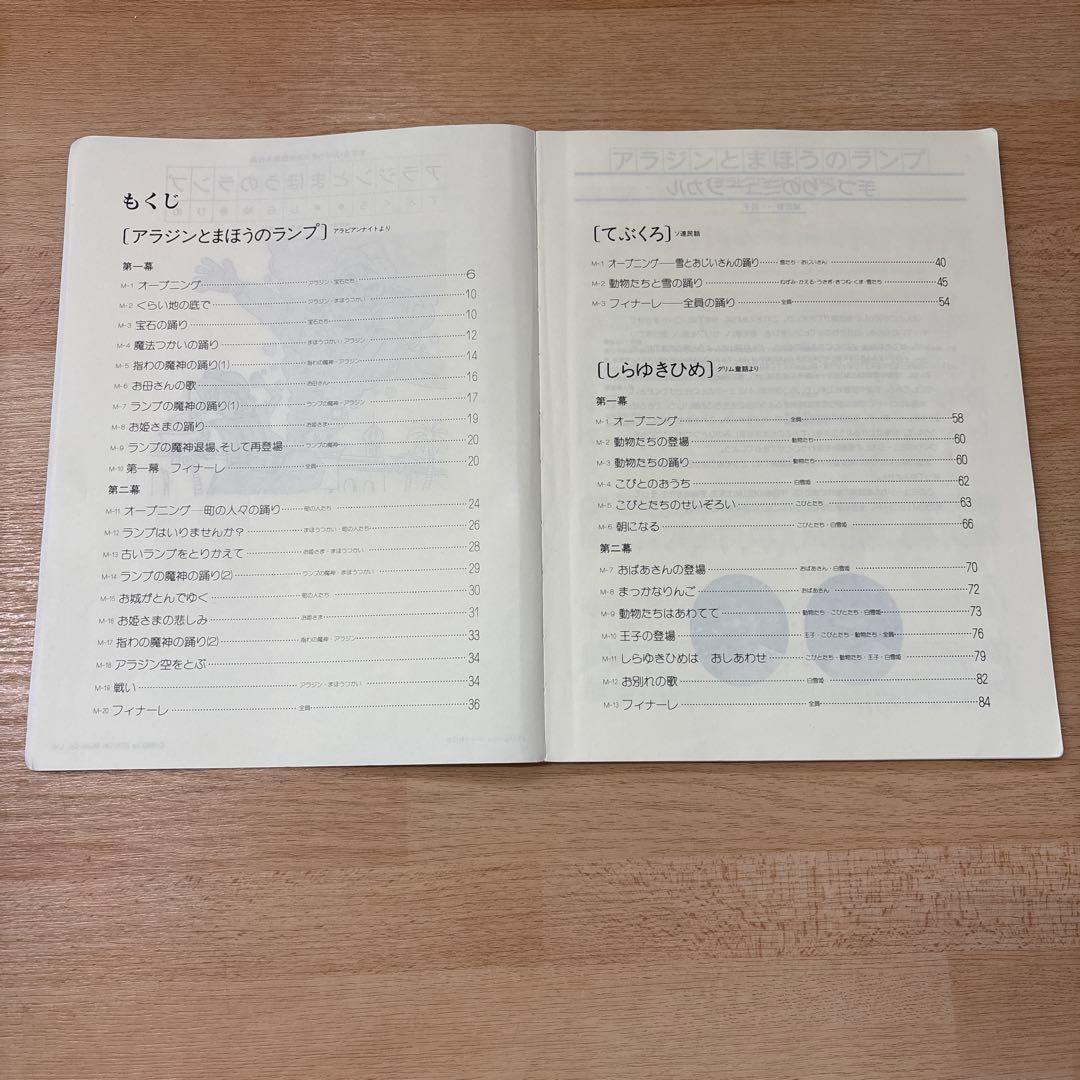 もくじ
[アラジンとまほうのランプ] アラビアンナイトより
第一幕
M-1 オープニング……アラジン・宝石たち……6
M-2 くらい地の底で……アラジン・まほうつかい……10
M-3 宝石の踊り……宝石たち……10
M-4 魔法つかいの踊り……まほうつかい・アラジン……12
M-5 指わの魔神の踊り(1)……指わの魔神・アラジン……14
M-6 お母さんの歌……お母さん……16
M-7 ランプの魔神の踊り(1)……ランプの魔神・アラジン……17
M-8 お姫さまの踊り……お姫さま……19
M-9 ランプの魔神退場、そして再登場……ランプの魔神……20
M-10 第一幕 フィナーレ……全員……20
第二幕
M-11 オープニング―町の人々の踊り……町の人たち……24
M-12 ランプはいりませんか?……まほうつかい・町の人たち……26
M-13 古いランプをとりかえて……お姫さま・まほうつかい……28
M-14 ランプの魔神の踊り(2)……ランプの魔神・まほうつかい……29
M-15 お城がとんでゆく……町の人たち……30
M-16 お姫さまの悲しみ……お姫さま……31
M-17 指わの魔神の踊り(2)……指わの魔神・アラジン……33
M-18 アラジン空をとぶ……34
M-19 戦い……アラジン・まほうつかい……34
M-20 フィナーレ……全員……36
アラジンとまほうのランプ
手づくりのミュージカル
[てぶくろ] ソ連民話
M-1 オープニング――雪とおじいさんの踊り……雪たち・おじいさん……40
M-2 動物たちと雪の踊り……ねずみ・かえる・うさぎ・きつね・くま・雪たち……45
M-3 フィナーレ――全員の踊り……全員……54
[しらゆきひめ] グリム童話より
第一幕
M-1 オープニング……全員……58
M-2 動物たちの登場……動物たち……60
M-3 動物たちの踊り……動物たち……60
M-4 こびとのおうち……白雪姫……62
M-5 こびとたちのせいぞろい……こびとたち……63
M-6 朝になる……こびとたち・白雪姫……66
第二幕
M-7 おばあさんの登場……おばあさん・白雪姫……70
M-8 まっかなりんご……おばあさん……72
M-9 動物たちはあわてて……動物たち・こびとたち・白雪姫……73
M-10 王子の登場……王子・こびとたち・動物たち・全員……76
M-11 しらゆきひめは おしあわせ……こびとたち・動物たち・王子・白雪姫……79
M-12 お別れの歌……白雪姫……82
M-13 フィナーレ……全員……84